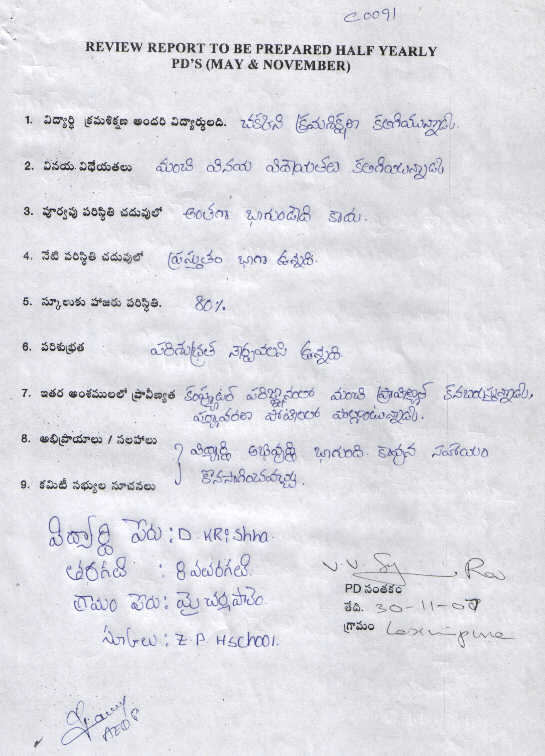 C0091
REVIEW REPORT TO BE PREPARED HALF YEARLY
PD'S (MAY & NOVEMBER)
1. విద్యార్థి క్రమశిక్షణ అందరి విద్యార్థులది. చక్కని క్రమశిక్షణ కలిగియున్నాడు.
2. వినయ విధేయతలు మంచి వినయ విధేయతలు కలిగియున్నాడు
3. పూర్వపు పరిస్థితి చదువులో అంతగా బాగుండేది కాదు.
4. నేటి పరిస్థితి చదువులో ప్రస్తుతం బాగా ఉన్నది.
5. స్కూలుకు హాజరు పరిస్థితి. 80%
6. పరిశుభ్రత పరిశుభ్రత నేర్చవలసి ఉన్నది
7. ఇతర అంశములలో ప్రావీణ్యత కంప్యుటర్ పరిజ్ఞానంలో మంచి ప్రావిణ్యత కనబరుస్తున్నాడు,
పోటిలలో పాల్గొంటున్నాడు.
8. అభిప్రాయాలు / సలహాలు విద్యార్థి అభివృద్ధి బాగుంది. కావున సహాయం
కొనసాగించవచ్చు
9. కమిటీ సభ్యుల సూచనలు
విద్యార్థి పేరు : D. KRiShna.
తరగతి : 8 వ తరగతి.
గ్రామం పేరు:
స్కూలు : Z. P. H School.
PD సంతకం
తేది. 30-11-07
గ్రామం